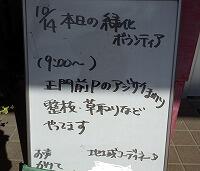 10/14 本日の緑化
ボランティア
(9:00〜)
正門前Pのアジサイまわり
整枝・草取りなど
やってます
お声
かけて
地域コーディネータ